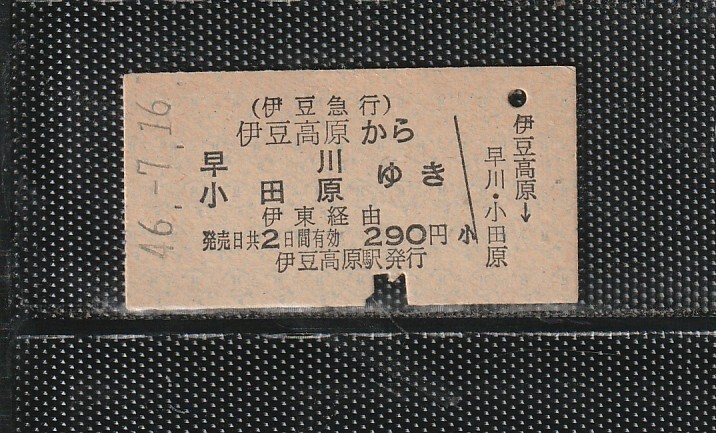 46.-7.16
(伊豆急行)
伊豆高原から
早川
小田原 ゆき
伊東経由
発売日共2日間有効 290円 小
伊豆高原駅発行
伊豆高原→
早川・小田原